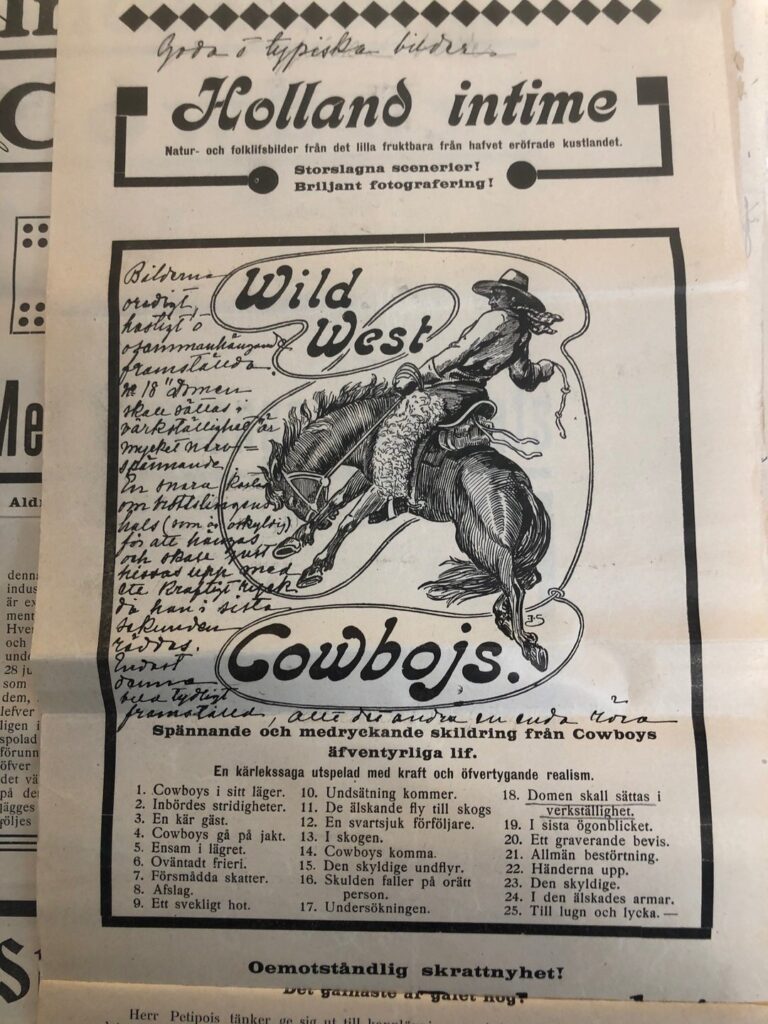 Goda o typiska bilder.
Holland intime
Natur- och folklifsbilder från det lilla fruktbara från hafvet eröfrade kustlandet.
Storslagna scenerier!
Briljant fotografering!
Wild
West
Cowbojs.
Bilderna
oredigt,
hastigt o
osammanhängande
framställda.
№ 18 "Domen
skall sättas i
värkställighet" är
mycket nerv-
spännande.
En snara kastas
om brottslingens
hals (som är oskyldig)
för att hängas
och skall just
hissas upp med
ett kraftigt ryck
då han i sista
sekunden
räddas.
Endast
denna
bild tydligt
framställd, alla de andra en enda röra
Spännande och medryckande skildring från Cowboys
äfventyrliga lif.
En kärlekssaga utspelad med kraft och öfvertygande realism.
1. Cowboys i sitt läger.
2. Inbördes stridigheter.
3. En kär gäst.
4. Cowboys gå på jakt.
5. Ensam i lägret.
6. Oväntadt frieri.
7. Försmådda skatter.
8. Afslag.
9. Ett svekligt hot.
10. Undsätning kommer.
11. De älskande fly till skogs
12. En svartsjuk förföljare.
13. I skogen.
14. Cowboys komma.
15. Den skyldige undflyr.
16. Skulden faller på orätt
person.
17. Undersökningen.
18. Domen skall sättas i
verkställighet.
19. I sista ögonblicket.
20. Ett graverande bevis.
21. Allmän bestörtning.
22. Händerna upp.
23. Den skyldige.
24. I den älskades armar.
25. Till lugn och lycka. —
Oemotståndlig skrattnyhet!
Det galnaste af galet nog!
Herr Petipois tänker ge sig ut till
Me
Ald
denna
indus
är ex
ment
Hve
och
unde
28 ju
som
dem,
lefver
ligen i
spolad
förunn
öfver
det vä
på de
lägges
följes